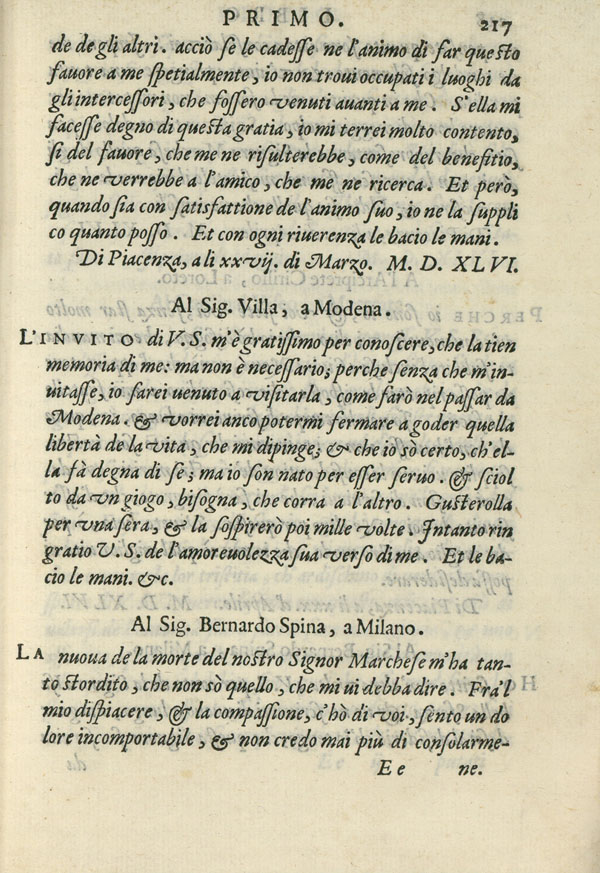 PRIMO. 217
de de gli altri. acciò se le cadesse ne l'animo di far questo
fauore a me spetialmente, io non troui occupati i luoghi da
gli intercessori, che fossero venuti auanti a me. S'ella mi
facesse degno di questa gratia, io mi terrei molto contento,
sì del fauore, che me ne risulterebbe, come del benefitio,
che ne verrebbe a l'amico, che me ne ricerca. Et però,
quando sia con satisfattione de l'animo suo, io ne la suppli
co quanto posso. Et con ogni riuerenza le bacio le mani.
Di Piacenza, a li xxvij. di Marzo. M. D. XLVI.
Al Sig. Villa, a Modena.
L'INVITO di V. S. m'è gratissimo per conoscere, che la tien
memoria di me: ma non è necessario; perche senza che m'in-
uitasse, io farei uenuto a visitarla, come farò nel passar da
Modena. & vorrei anco potermi fermare a goder quella
libertà de la vita, che mi dipinge; & che io sò certo, ch'el-
la fà degna di se; ma io son nato per esser seruo. & sciol
to da vn giogo, bisogna, che corra a l'altro. Gusterolla
per vna sera, & la sospirerò poi mille volte. Intanto rin
gratio V. S. de l'amoreuolezza sua verso di me. Et le ba-
cio le mani. &c.
Al Sig. Bernardo Spina, a Milano.
LA nuoua de la morte del nostro Signor Marchese m'ha tan-
to stordito, che non sò quello, che mi ui debba dire. Fra'l
mio dispiacere, & la compassione, c'hò di voi, sento un do
lore incomportabile, & non credo mai più di consolarme-
Ee ne.